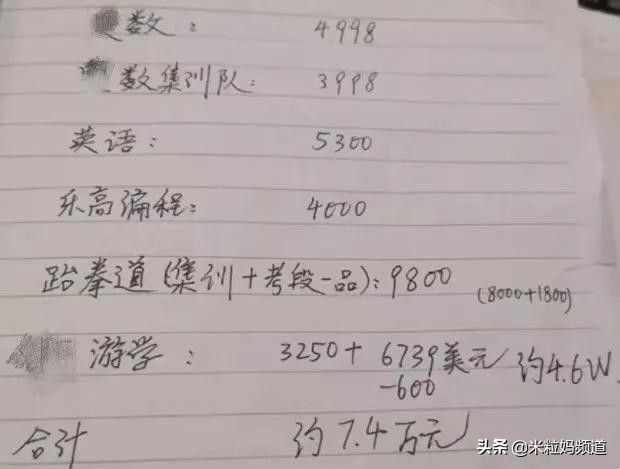 数: 4998
数集训队: 3998
英语: 5300
乐高编程: 4000
跆拳道(集训+考段一品): 9800 (8000+1800)
游学: 3250+6739美元 约4.6W
-600
合计 约7.4万元
头条@米粒妈频道